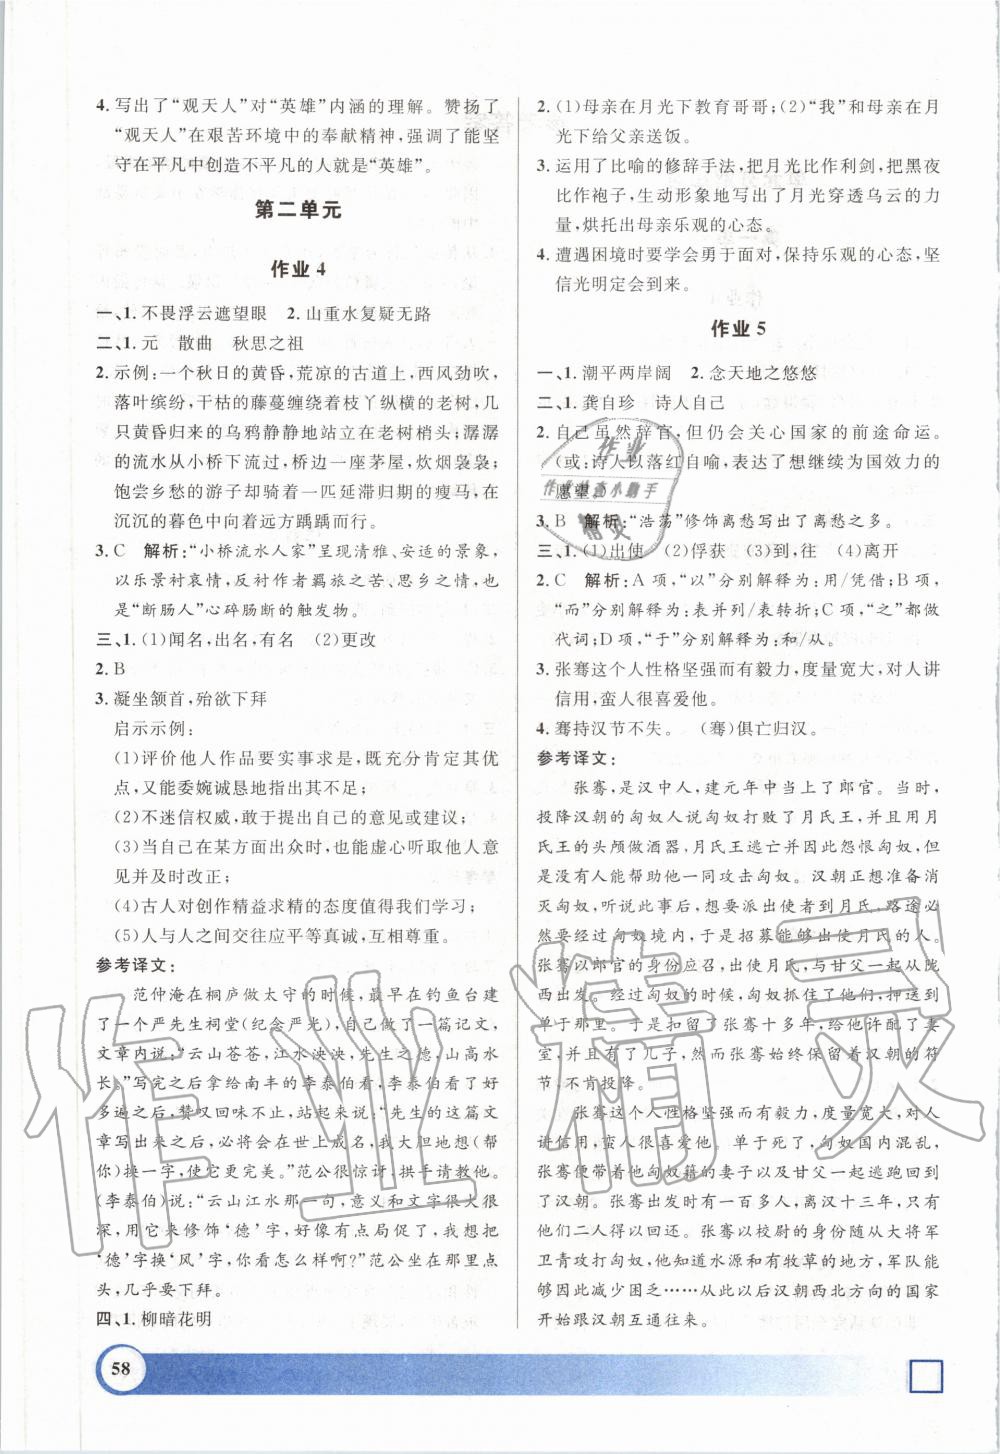 4. 写出了“观天人”对“英雄”内涵的理解。赞扬了
“观天人”在艰苦环境中的奉献精神，强调了能坚
守在平凡中创造不平凡的人就是“英雄”。
第二单元
作业 4
一、1. 不畏浮云遮望眼　2. 山重水复疑无路
二、1. 元　散曲　秋思之祖
2. 示例：一个秋日的黄昏，荒凉的古道上，西风劲吹，
落叶缤纷，干枯的藤蔓缠绕着枝丫纵横的老树，几
只黄昏归来的乌鸦静静地站立在老树梢头；潺潺
的流水从小桥下流过，桥边一座茅屋，炊烟袅袅；
饱尝乡愁的游子骑着一匹延滞归期的瘦马，在
沉沉的暮色中向着远方踽踽而行。
3. C　解析：“小桥流水人家”呈现清雅、安适的景象，
以乐景衬哀情，反衬作者羁旅之苦与思乡之情，也
是“断肠人”心碎肠断的触发物。
三、1. (1)闻名，出名，有名　(2)更改
2. B
3. 凝坐颔首，殆欲下拜
启示示例：
(1)评价他人作品要实事求是，既充分肯定其优
点，又能委婉诚恳地指出其不足；
(2)不迷信权威，敢于提出自己的意见或建议；
(3)当自己在某方面出众时，也能虚心听取他人意
见并及时改正；
(4)古人对创作精益求精的态度值得我们学习；
(5)人与人之间交往应平等真诚，互相尊重。
参考译文：
范仲淹在桐庐做太守的时候，最早在钓鱼台建
了一个严先生祠堂(纪念严光)，自己写了一篇记文，
文章内说：“云山苍苍，江水泱泱，先生之德，山高水
长。”写完之后拿给南丰的李泰伯看，李泰伯看了好
多遍之后，赞叹回味不止，站起来说：“先生的这篇文
章写出来之后，必将会在世上成名，我大胆地想(帮
你)换一字，使它更完美。”范公很惊讶，拱手请教他。
(李泰伯)说：“云山江水那一句，意义和文字很大很
深，用它来修饰‘德’字，好像有点局促了，我想把
‘德’字换‘风’字，你看怎么样啊？”范公坐在那里点
头，几乎要下拜。
四、1. 柳暗花明
2. (1)母亲在月光下教育哥哥；(2)“我”和母亲在月
光下给父亲送饭。
3. 运用了比喻的修辞手法，把月光比作利剑，把黑夜
比作袍子，生动形象地写出了月光穿透乌云的力
量，烘托出母亲乐观的心态。
4. 遭遇困境时要学会勇于面对，保持乐观的心态，坚
信光明定会到来。
作业 5
一、1. 潮平两岸阔　2. 念天地之悠悠
二、1. 龚自珍　诗人自己
2. 自己虽然辞官，但仍会关心国家的前途命运。
(或：诗人以落红自喻，表达了想继续为国效力的
愿望。)
3. B　解析：“浩荡”修饰离愁写出了离愁之多。
三、1. (1)出使　(2)俘获　(3)到，往　(4)离开
2. C　解析：A项，“以”分别解释为：用/凭借；B项，
“而”分别解释为：表并列/表转折；C项，“之”都做
代词；D项，“于”分别解释为：和/从。
3. 张骞这个人性格坚强而有毅力，度量宽大，对人讲
信用，蛮人很喜爱他。
4. 骞持汉节不失。　(骞)俱亡归汉。
参考译文：
张骞，是汉中人，建元年中当上了郎官。当时，
投降汉朝的匈奴人说匈奴打败了月氏王，并且用月
氏王的头颅做酒器，月氏王因此怨恨匈奴，但苦
于没有人能帮助他一同攻击匈奴。汉朝正想准备消
灭匈奴，听说此事后，想要派出使者到月氏，路途必
然要经过匈奴境内，于是招募能够出使月氏的人。
张骞以郎官的身份应召，出使月氏，与甘父一起从陇
西出发。经过匈奴的时候，匈奴抓住了他们，张骞
于那里。于是扣留张骞十多年，给他许配了妻
室，并且有了儿子，然而张骞始终保留着汉朝的符
节，不肯投降。
张骞这个人性格坚强而有毅力，度量宽大，对人
讲信用，蛮人很喜爱他。单于死了，匈奴国内混乱，
张骞便带着他匈奴籍的妻子以及甘父一起逃跑回到
了汉朝。张骞出发时有一百多人，离汉十三年，只有
他们二人得以回还。张骞以校尉的身份随从大将军
卫青攻打匈奴，他知道水源和有牧草的地方，军队能
够因此减少困乏……从此以后汉朝西北方向的国家
开始跟汉朝互通往来。
58
作业精灵